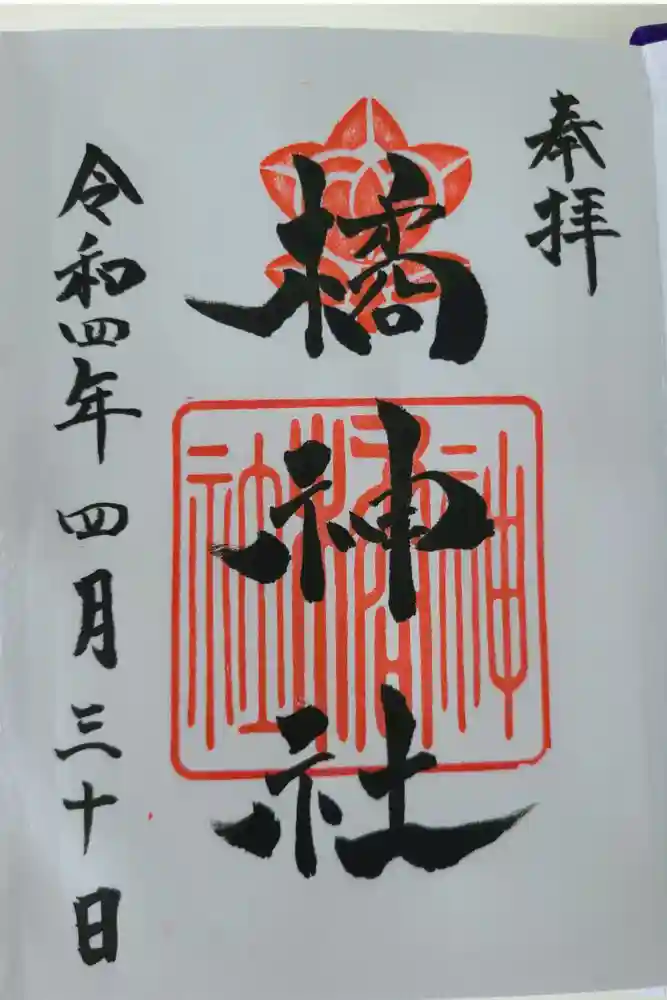 奉拝
橘神社
令和四年四月三十日